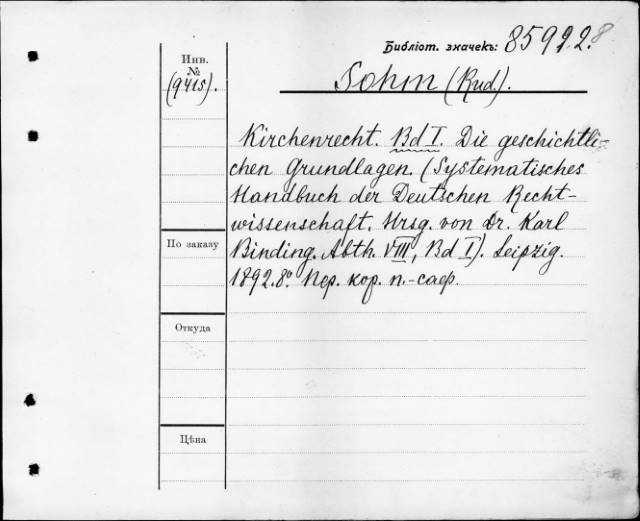 Библіот. значекъ: 85922.8
Инв.
№
(9415).
Sohm (Rud.).
Kirchenrecht. Bd I. Die geschichtli-
chen Grundlagen. (Systematisches
Handbuch der Deutschen Recht-
wissenschaft. Hrsg. von Dr. Karl
По заказу
Binding. Abth. VIII, Bd I). Leipzig.
1892. 8º. Пер. кор. п.-саф.
Откуда
Цѣна